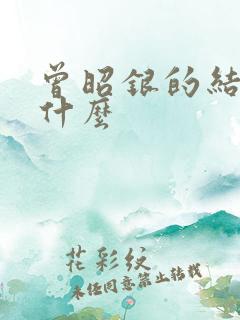 曾昭銀的結
什麼
花彩紋
未经同意禁止转载